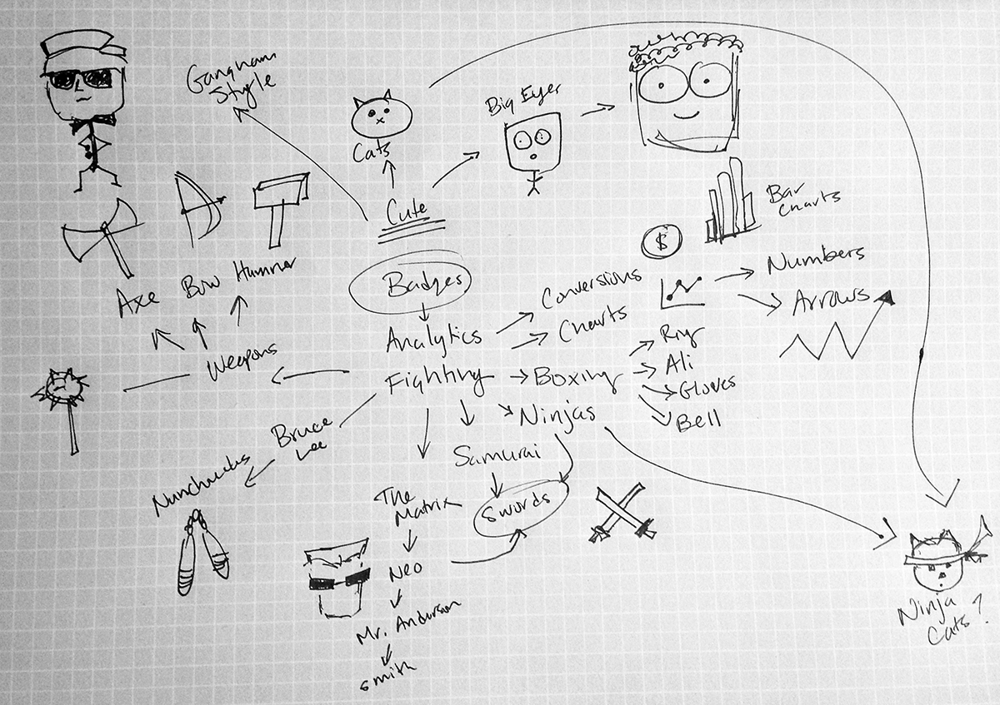 Gangnam
Style
Cats
Big Eyes
Cute
$
Bar
Charts
Badges
Axe
Bow
Hammer
Weapons
Analytics
Conversions
Charts
Numbers
Arrows
Fighting
Boxing
Ring
Ali
Gloves
Bell
Ninjas
Bruce
Lee
Nunchucks
Samurai
Swords
The
Matrix
Neo
Mr. Anderson
Smith
Ninja
Cats?